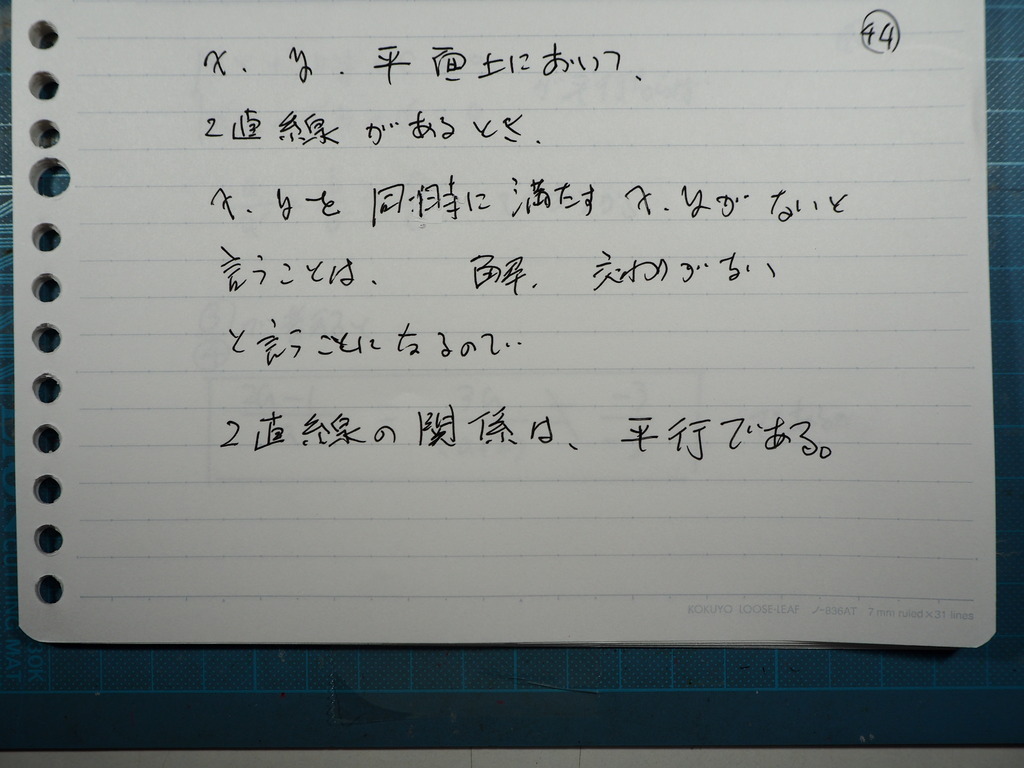 44
x、y、平面上において、
2直線があるとき、
x、yを同時に満たすx、yがないと
言うことは、 解、交わりがない
と言うことになるので…
2直線の関係は、平行である。
KOKUYO LOOSE-LEAF ノ-836AT 7mm ruled×31 lines